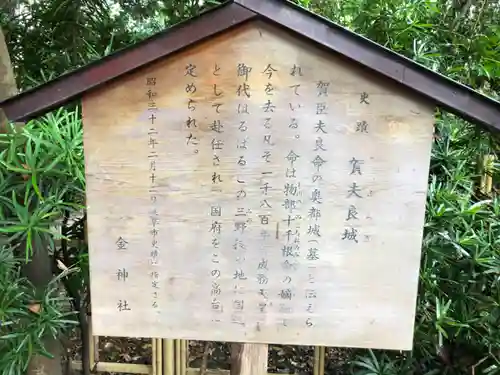 史蹟　賀夫良城
賀臣夫良命の奥都城(墓)と伝えら
れている。命は物部十千根命の嫡
今を去る凡そ一千八百年 成務天皇
御代はるばるこの三野後の地に国
として赴任され国府をこの高台に
定められた。
昭和三十二年二月十二 史蹟に指定さる。
金神社